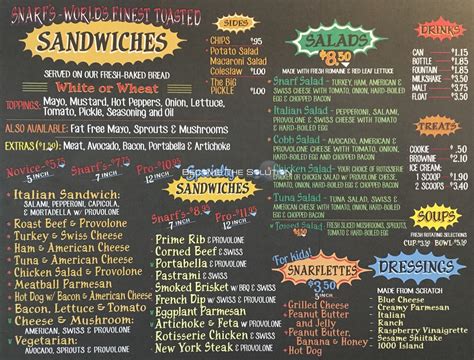 SNARF'S - WORLDS FINEST TOASTED
SANDWICHES
SERVED ON OUR FRESH-BAKED BREAD
White or Wheat
TOPPINGS: Mayo, Mustard, Hot Peppers, Onion, Lettuce,
Tomato, Pickle, Seasoning and Oil
ALSO AVAILABLE: Fat Free Mayo, Sprouts & Mushrooms
EXTRAS ($1.50) Meat, Avocado, Bacon, Portabella & Artichoke
Novice-$5.75 5 INCH
Snarf's-$7.75 7 INCH
Pro-$10.95 12 INCH
Italian Sandwich:
SALAMI, PEPPERONI, CAPICOLA,
& MORTADELLA W/ PROVOLONE
Roast Beef & Provolone
Turkey & Swiss Cheese
Ham & American Cheese
Tuna & American Cheese
Chicken Salad & Provolone
Meatball Parmesan
Hot Dog W/ Bacon & American Cheese
Bacon, Lettuce & Tomato
Cheese & Mushroom:
AMERICAN, SWISS & PROVOLONE
Vegetarian:
AVOCADO, SPROUTS & PROVOLONE
SIDES
CHIPS $.95
Potato Salad
Macaroni Salad
Coleslaw $1.00
THE BIG
PICKLE $1.00
SANDWICHES
Snarf's-$8.95 7 INCH
Pro-$11.95 12 INCH
Prime Rib W/ PROVOLONE
Corned Beef W/ SWISS
Portabella W/ PROVOLONE
Pastrami W/ SWISS
Smoked Brisket W/ BBQ & SWISS
French Dip W/ SWISS & PROVOLONE
Eggplant Parmesan
Artichoke & Feta W/ PROVOLONE
Rotisserie Chicken W/ SWISS
New York Steak W/ PROVOLONE
SALADS
$8.50
MADE WITH FRESH ROMAINE & RED LEAF LETTUCE
Snarf Salad - TURKEY, HAM, AMERICAN
& SWISS CHEESE WITH TOMATO, ONION, HARD-BOILED
EGG & CHOPPED BACON
& PROVOLONE, AMERICAN
AND SWISS CHEESE WITH TOMATO, ONION,
& HARD-BOILED EGG
Cobb Salad - AVOCADO, PROVOLONE
WITH TOMATO, ONION, HARD-BOILED
EGG & CHOPPED BACON
Tuna Salad
WITH TOMATO, ONION, HARD-BOILED EGG
& CHOPPED BACON
Tossed Salad - FRESH SLICED MUSHROOM, SPROUTS,
TOMATO, ONION & HARD-BOILED EGG
For kids!
SNARFLETTES
$3.50
5 INCH
Grilled Cheese
Peanut Butter
and Jelly
Peanut Butter,
Banana & Honey
Hot Dog
DRINKS
CAN $1.15
BOTTLE
FOUNTAIN
MILKSHAKE $3.50
MALT $3.75
FLOAT $3.50
TREATS
COOKIE
BROWNIE $2.10
ICE CREAM:
1 SCOOP
2 SCOOPS $3.40
SOUPS
FRESH ROTATING SELECTIONS
CUP $3.50 BOWL $5.50
DRESSINGS
MADE FROM SCRATCH
Blue Cheese
Creamy Parmesan
Italian
Ranch
Raspberry Vinaigrette
Sesame Shiitake
1000 Island